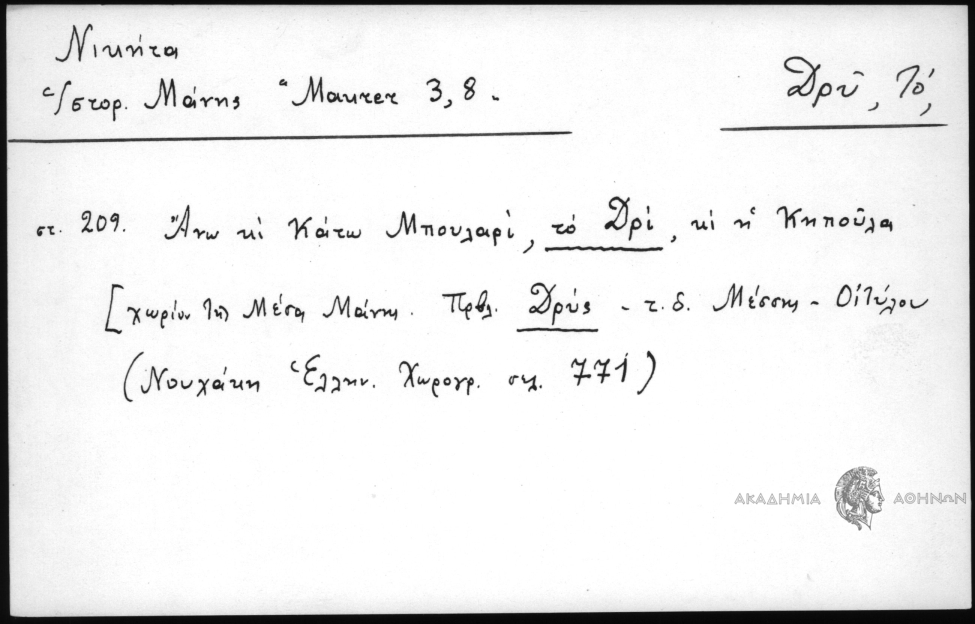 Νικήτα
Ἱστορ. Μάνης "Maurer 3, 8.
Δρῦ, Τό,
στ. 209. Ἄνω κι Κάτω Μπουλαρί, τό Δρί, κι ἡ Κηποῦλα
[χωρίον τῆς Μέσα Μάνης. Πρβλ. Δρύς - τ. δ. Μέσσης - Οἰτύλου
(Νουχάκη Ἑλλην. Χωρογρ. σελ. 771)
ΑΚΑΔΗΜΙΑ ΑΘΗΝΩΝ